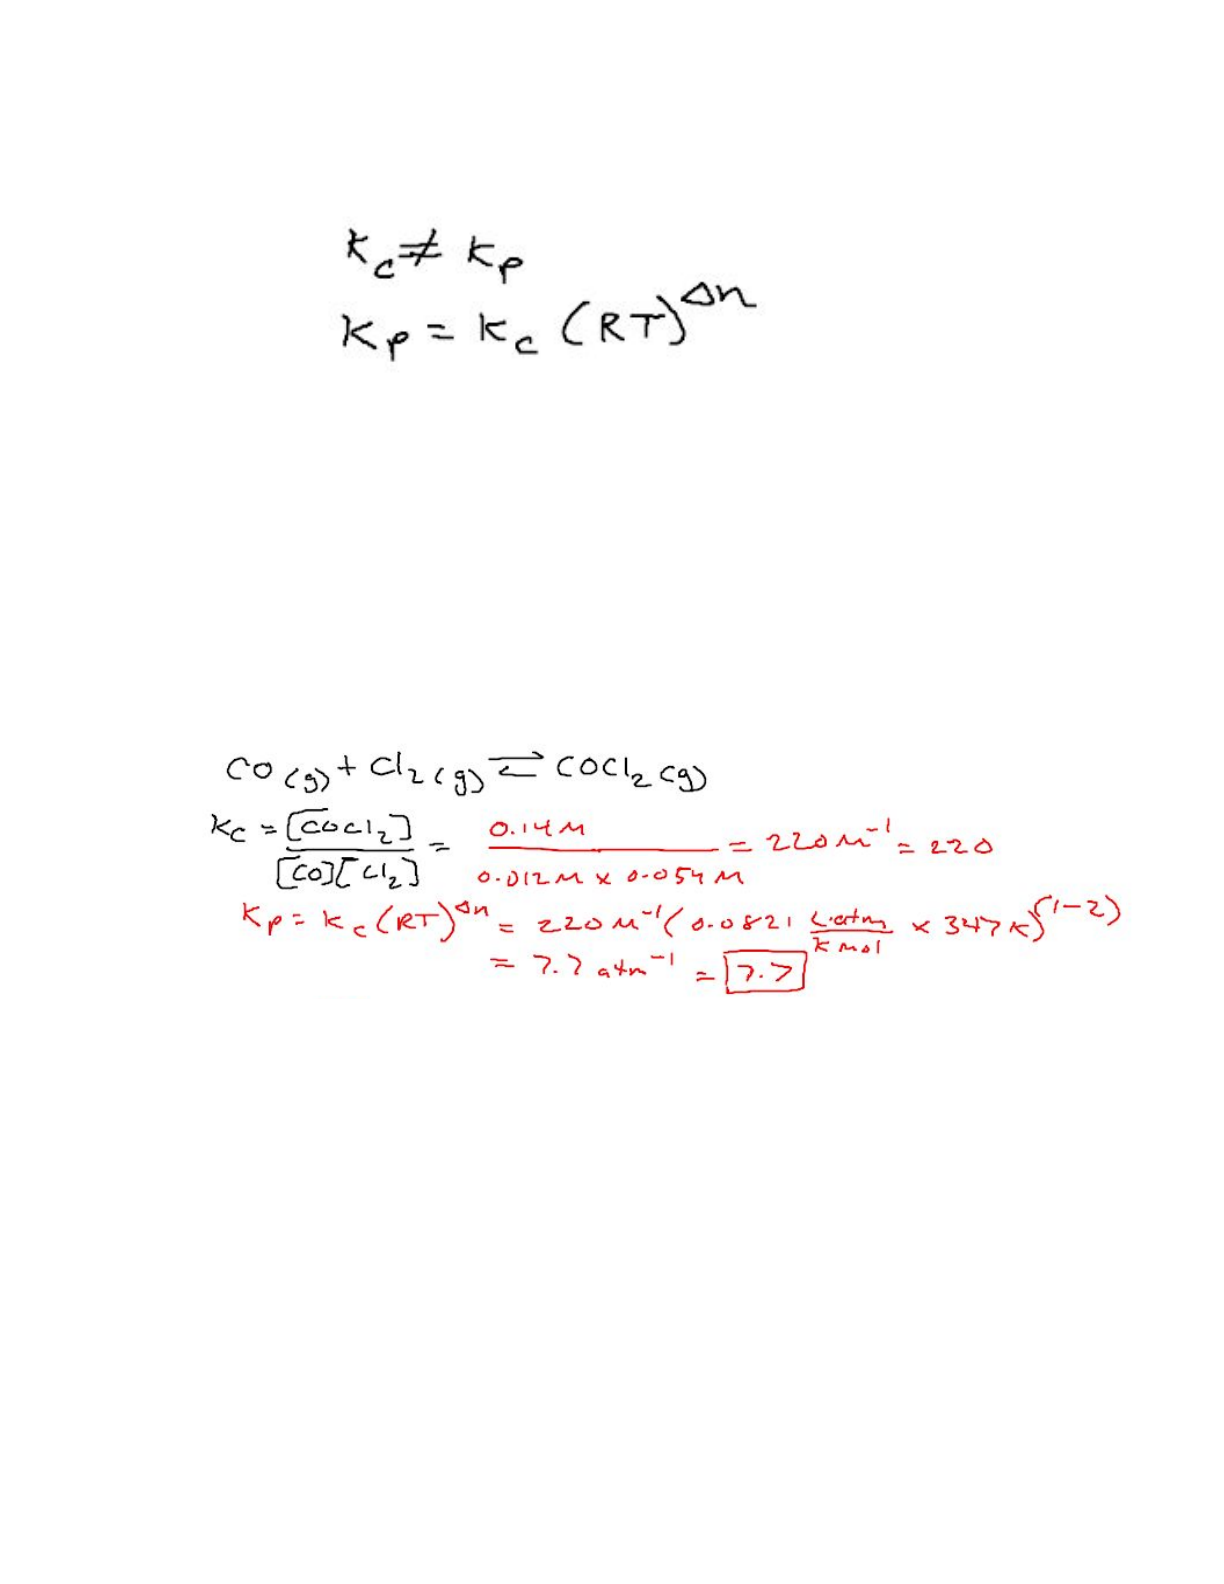 Kc ≠ Kp
Kp = Kc (RT)^Δn
CO(g) + Cl₂(g) ⇌ COCl₂(g)
Kc = [COCl₂] / [CO][Cl₂] = 0.14M / 0.012M x 0.054M = 220 M⁻¹ = 220
Kp = Kc (RT)^Δn = 220 M⁻¹ (0.0821 L·atm / K mol x 347K)^(1-2)
= 7.7 atm⁻¹ = 7.7